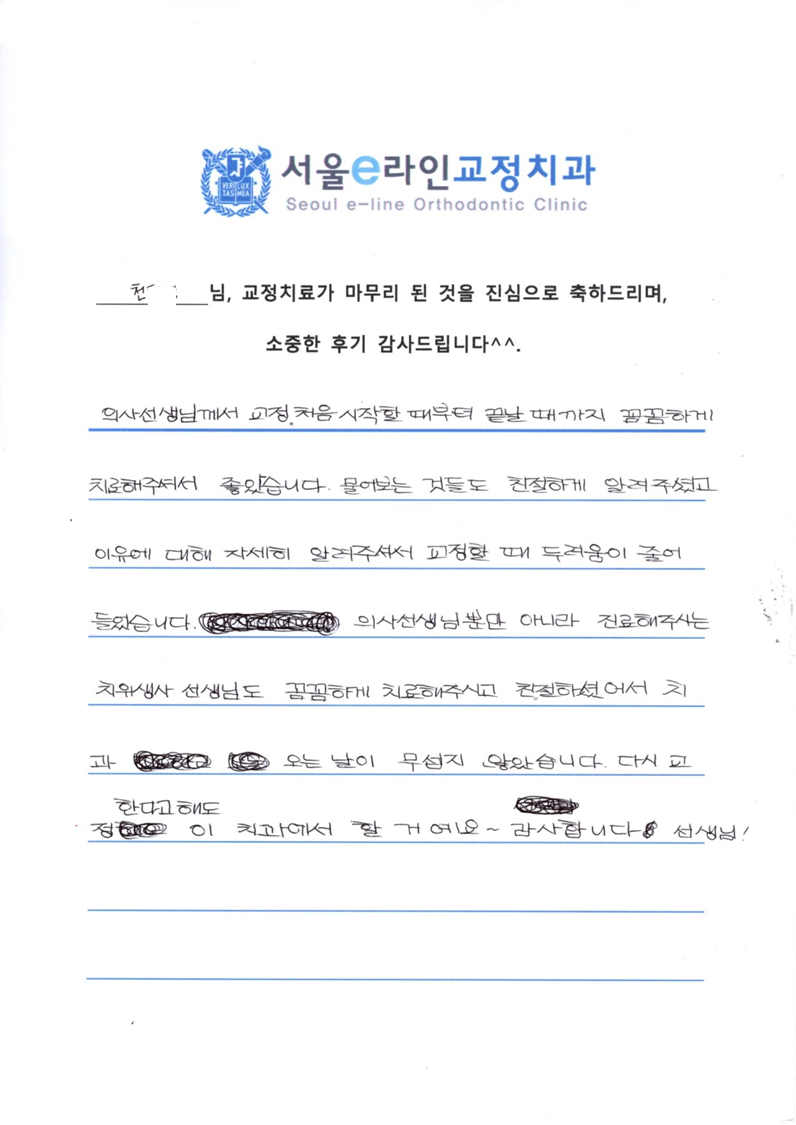 VERI LUX TAS MEA
서울e라인교정치과
Seoul e-line Orthodontic Clinic
천 님, 교정치료가 마무리 된 것을 진심으로 축하드리며,
소중한 후기 감사드립니다^^.
의사선생님께서 교정 처음 시작할 때부터 끝날 때까지 꼼꼼하게
치료해주셔서 좋았습니다. 물어보는 것들도 친절하게 알려주셨고
이유에 대해 자세히 알려주셔서 교정할 때 두려움이 줄어
들었습니다. 의사선생님뿐만 아니라 진료해주시는
치위생사 선생님도 꼼꼼하게 치료해주시고 친절하셨어서 치
과 오는 날이 무섭지 않았습니다. 다시 교
한다고해도
정 이 치과에서 할 거예요~ 감사합니다 선생님!